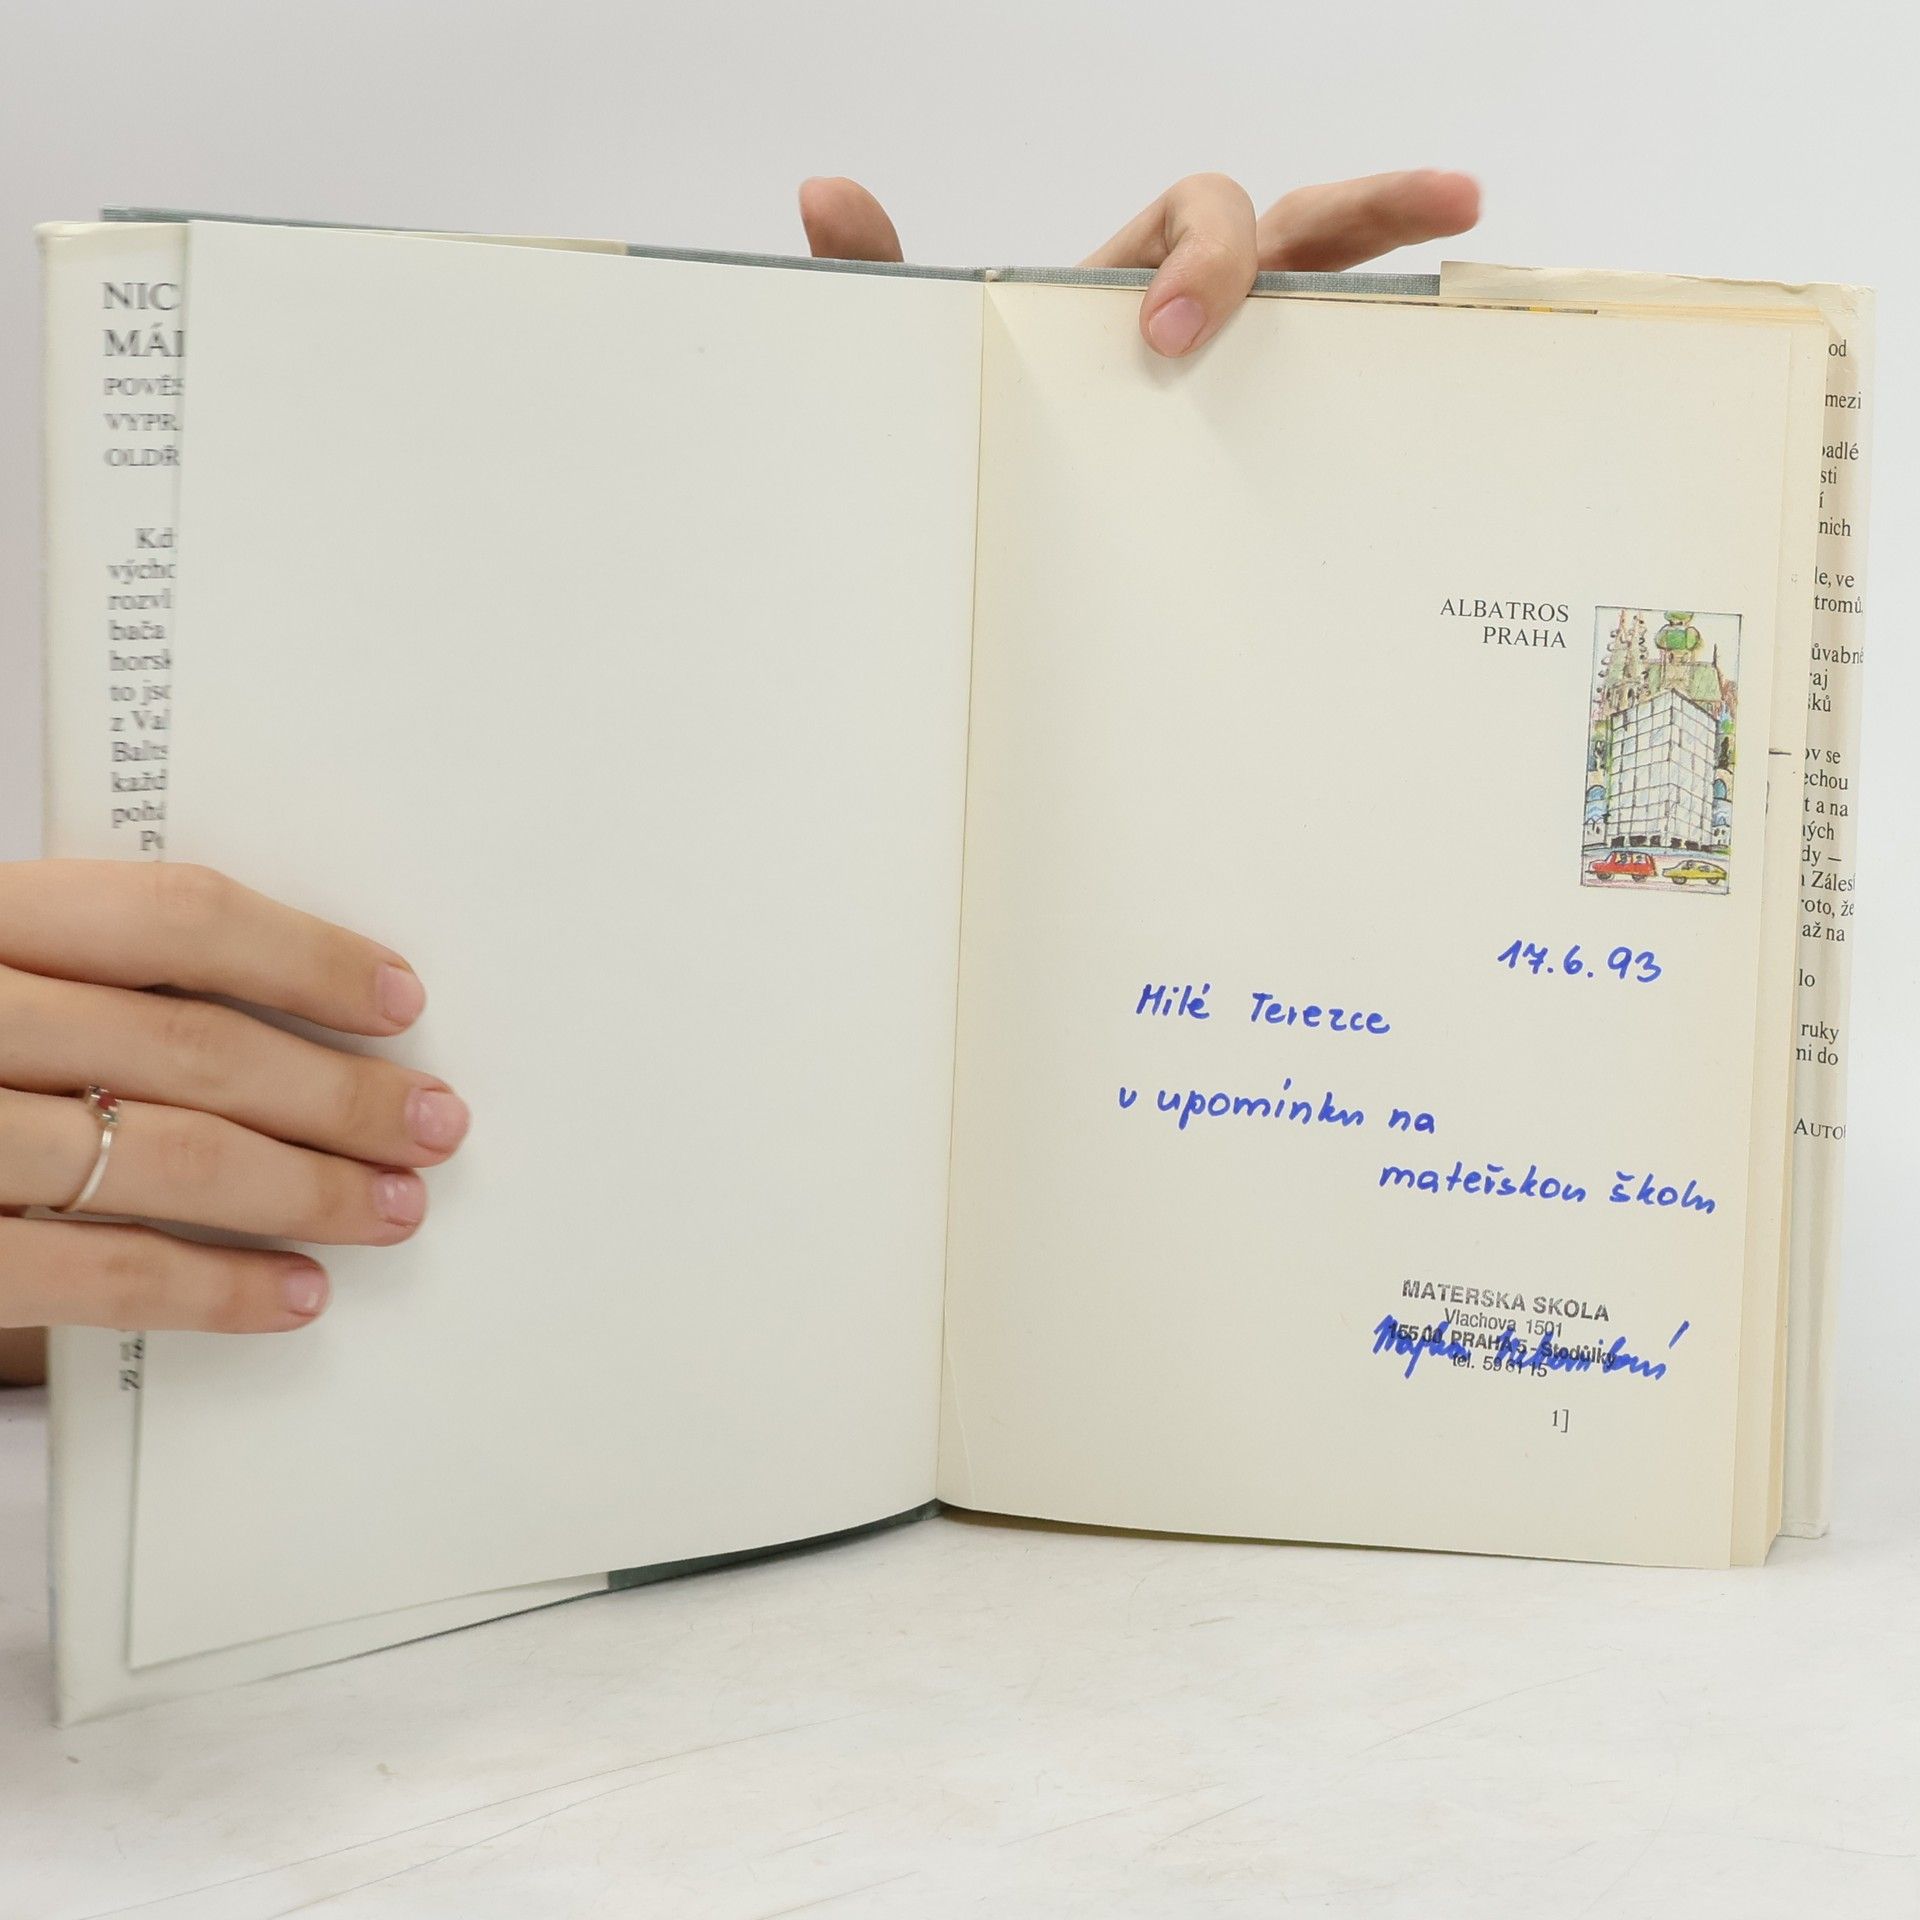 NIC
POVĚS
VYPR
OLDŘ
Kd
výcho
rozvl
bača
horsk
to jso
z Val
Balts
každ
pohá
ALBATROS
PRAHA
17.6.93
Milé Terezce
v upomínku na
mateřskou školu
MATERSKA SKOLA
Vlachova 1501
155 00 PRAHA 5 - Stodůlky
tel. 59 61 15
1]
od
mezi
padlé
sti
í
nich
le, ve
tromů.
ůvabné
raj
šků
ov se
echou
t a na
ných
dy –
Záles
roto, že
až na
lo
ruky
mi do
AUTOR